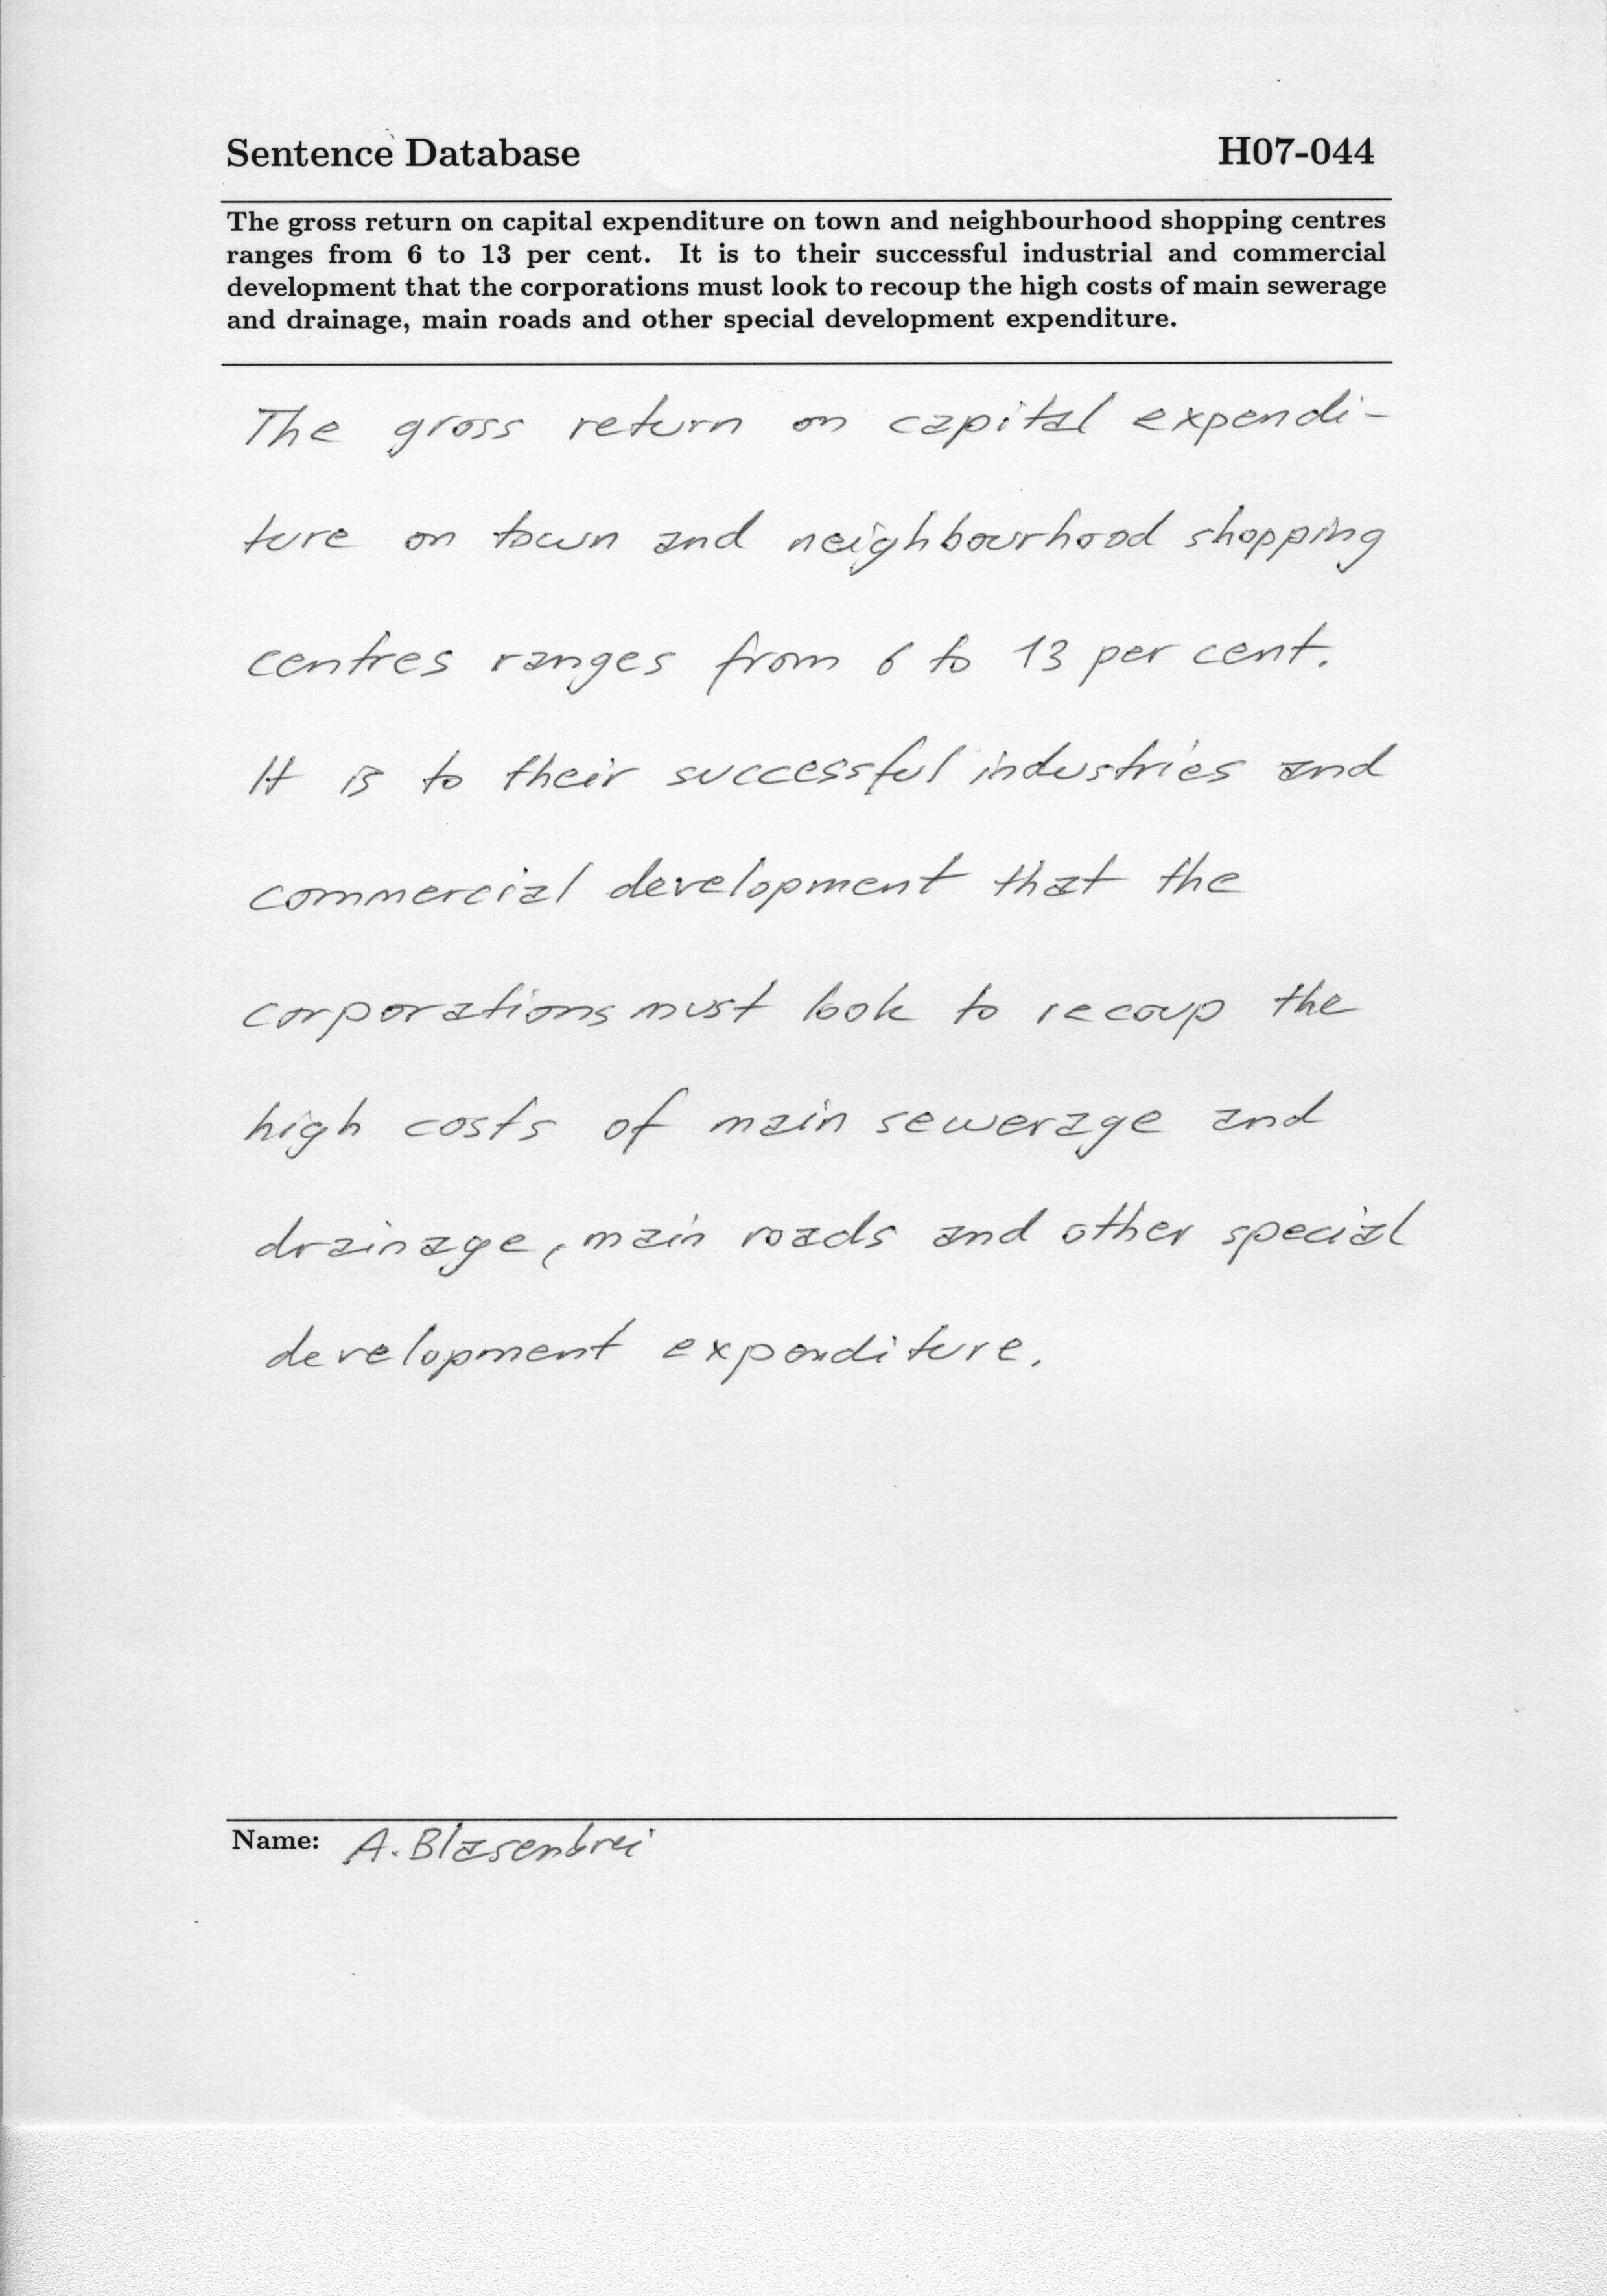 Sentence Database H07-044
The gross return on capital expenditure on town and neighbourhood shopping centres
ranges from 6 to 13 per cent. It is to their successful industrial and commercial
development that the corporations must look to recoup the high costs of main sewerage
and drainage, main roads and other special development expenditure.
The gross return on capital expendi-
ture on town and neighbourhood shopping
centres ranges from 6 to 13 per cent.
It is to their successful industries and
commercial development that the
corporations must look to recoup the
high costs of main sewerage and
drainage, main roads and other special
development expenditure.
Name: A. Blasenbrei